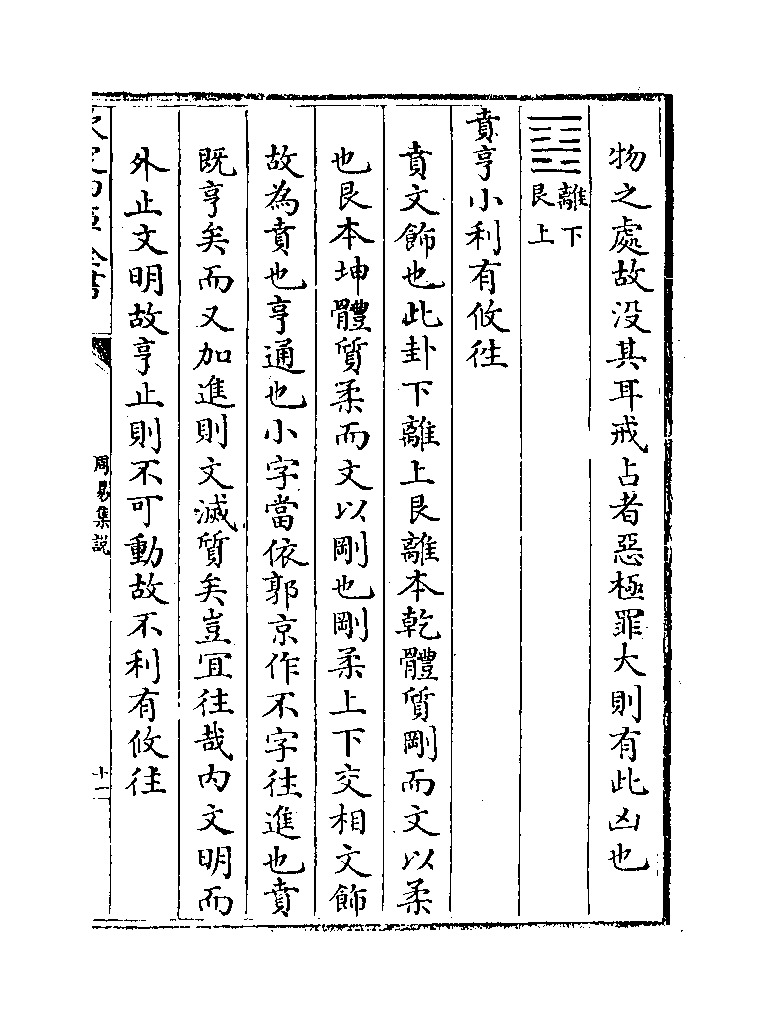 物之處故没其耳戒占者惡極罪大則有此凶也
離下
艮上
賁亨小利有攸往
賁文飾也此卦下離上艮離本乾體質剛而文以柔
也艮本坤體質柔而文以剛也剛柔上下交相文飾
故為賁也亨通也小字當依郭京作不字往進也賁
既亨矣而又加進則文滅質矣豈宜往哉内文明而
外止文明故亨止則不可動故不利有攸往
周易集説
十一